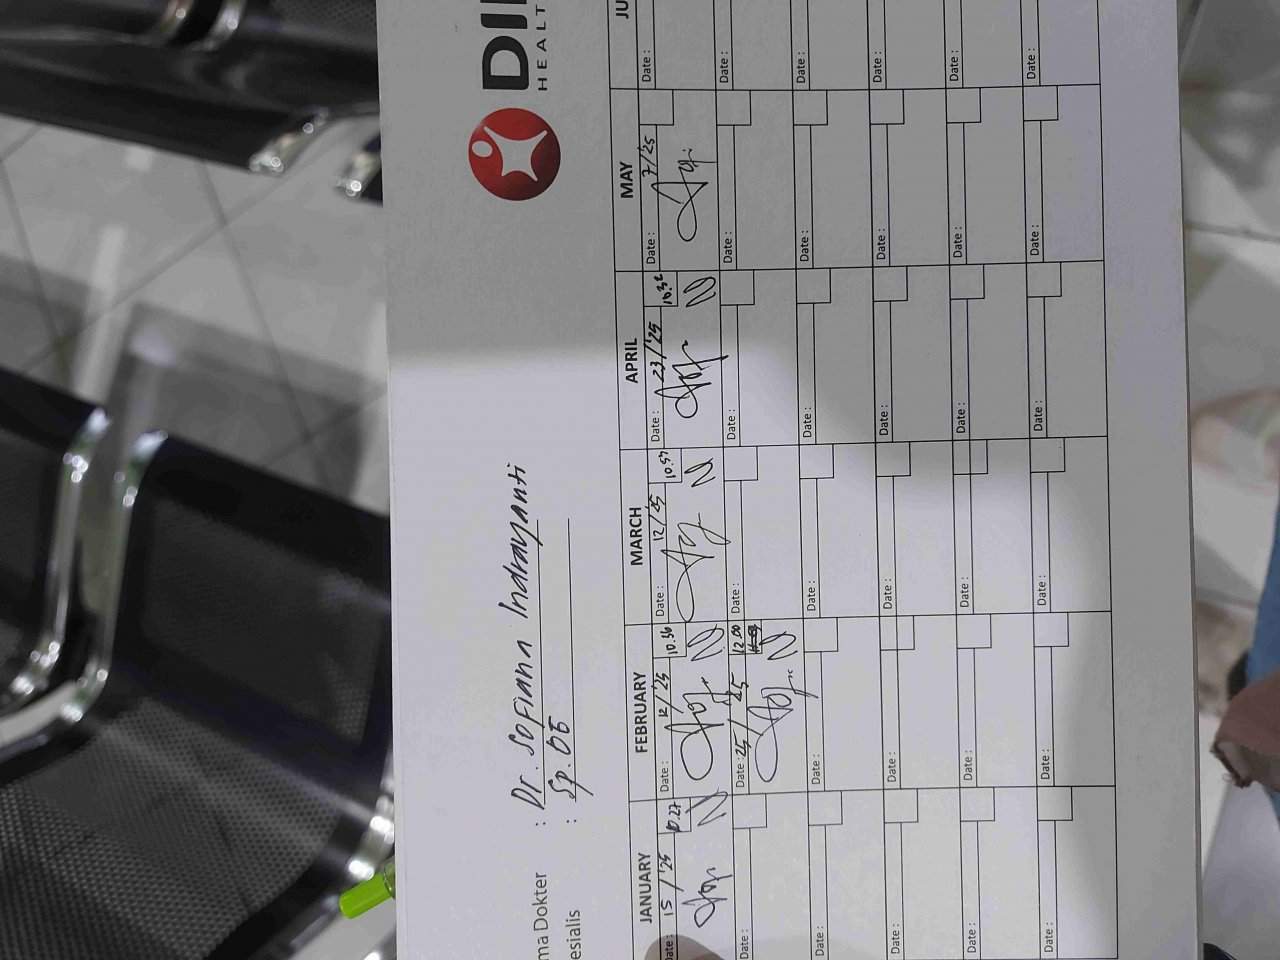 DJ
HEALT
ma Dokter : Dr. Sofiana Indrayanti
esialis : Sp. OG
JANUARY FEBRUARY MARCH APRIL MAY JU
Date : 15 / '25 10.27 Date : 12 / '25 10.36 Date : 12 / '25 10.57 Date : 23 / '25 10.32 Date : 7 / '25 Date :
Date : Date : 25 / '25 12.00 Date : Date : Date : Date :
Date : Date : Date : Date : Date : Date :
Date : Date : Date : Date : Date : Date :
Date : Date : Date : Date : Date : Date :
Date : Date : Date : Date : Date : Date :